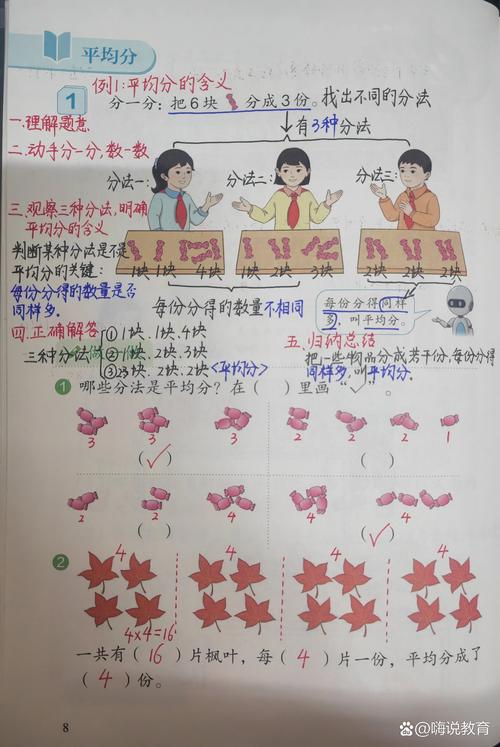 平均分
例1:平均分的含义
1 分一分：把6块分成3份。找出不同的分法
有3种分法
一.理解题意
二.动手分一分,数一数
分法一： 分法二： 分法三：
三.观察三种分法,明确
平均分的含义
判断某种分法是不是
平均分的关键：
每份分得的数量是否
同样多.
1块 1块 4块 1块 2块 3块 2块 2块 2块
每份分得的数量不相同
每份分得同样
多，叫平均分。
四.正确解答
三种分法
①1块、1块、4块
②1块、2块、3块
③2块、2块、2块<平均分>
五.归纳总结
把一些物品分成若干份,每份分得
同样多,叫平均分.
1 哪些分法是平均分？在（ ）里画“✓”。
3 3 3 2 2 2 1
（✓） （ ）
2 2 4 4 4 4
（ ） （✓）
2
4 4 4 4
4×4=16
一共有（16）片枫叶，每（4）片一份，平均分成了
（4）份。
8
嗨说教育